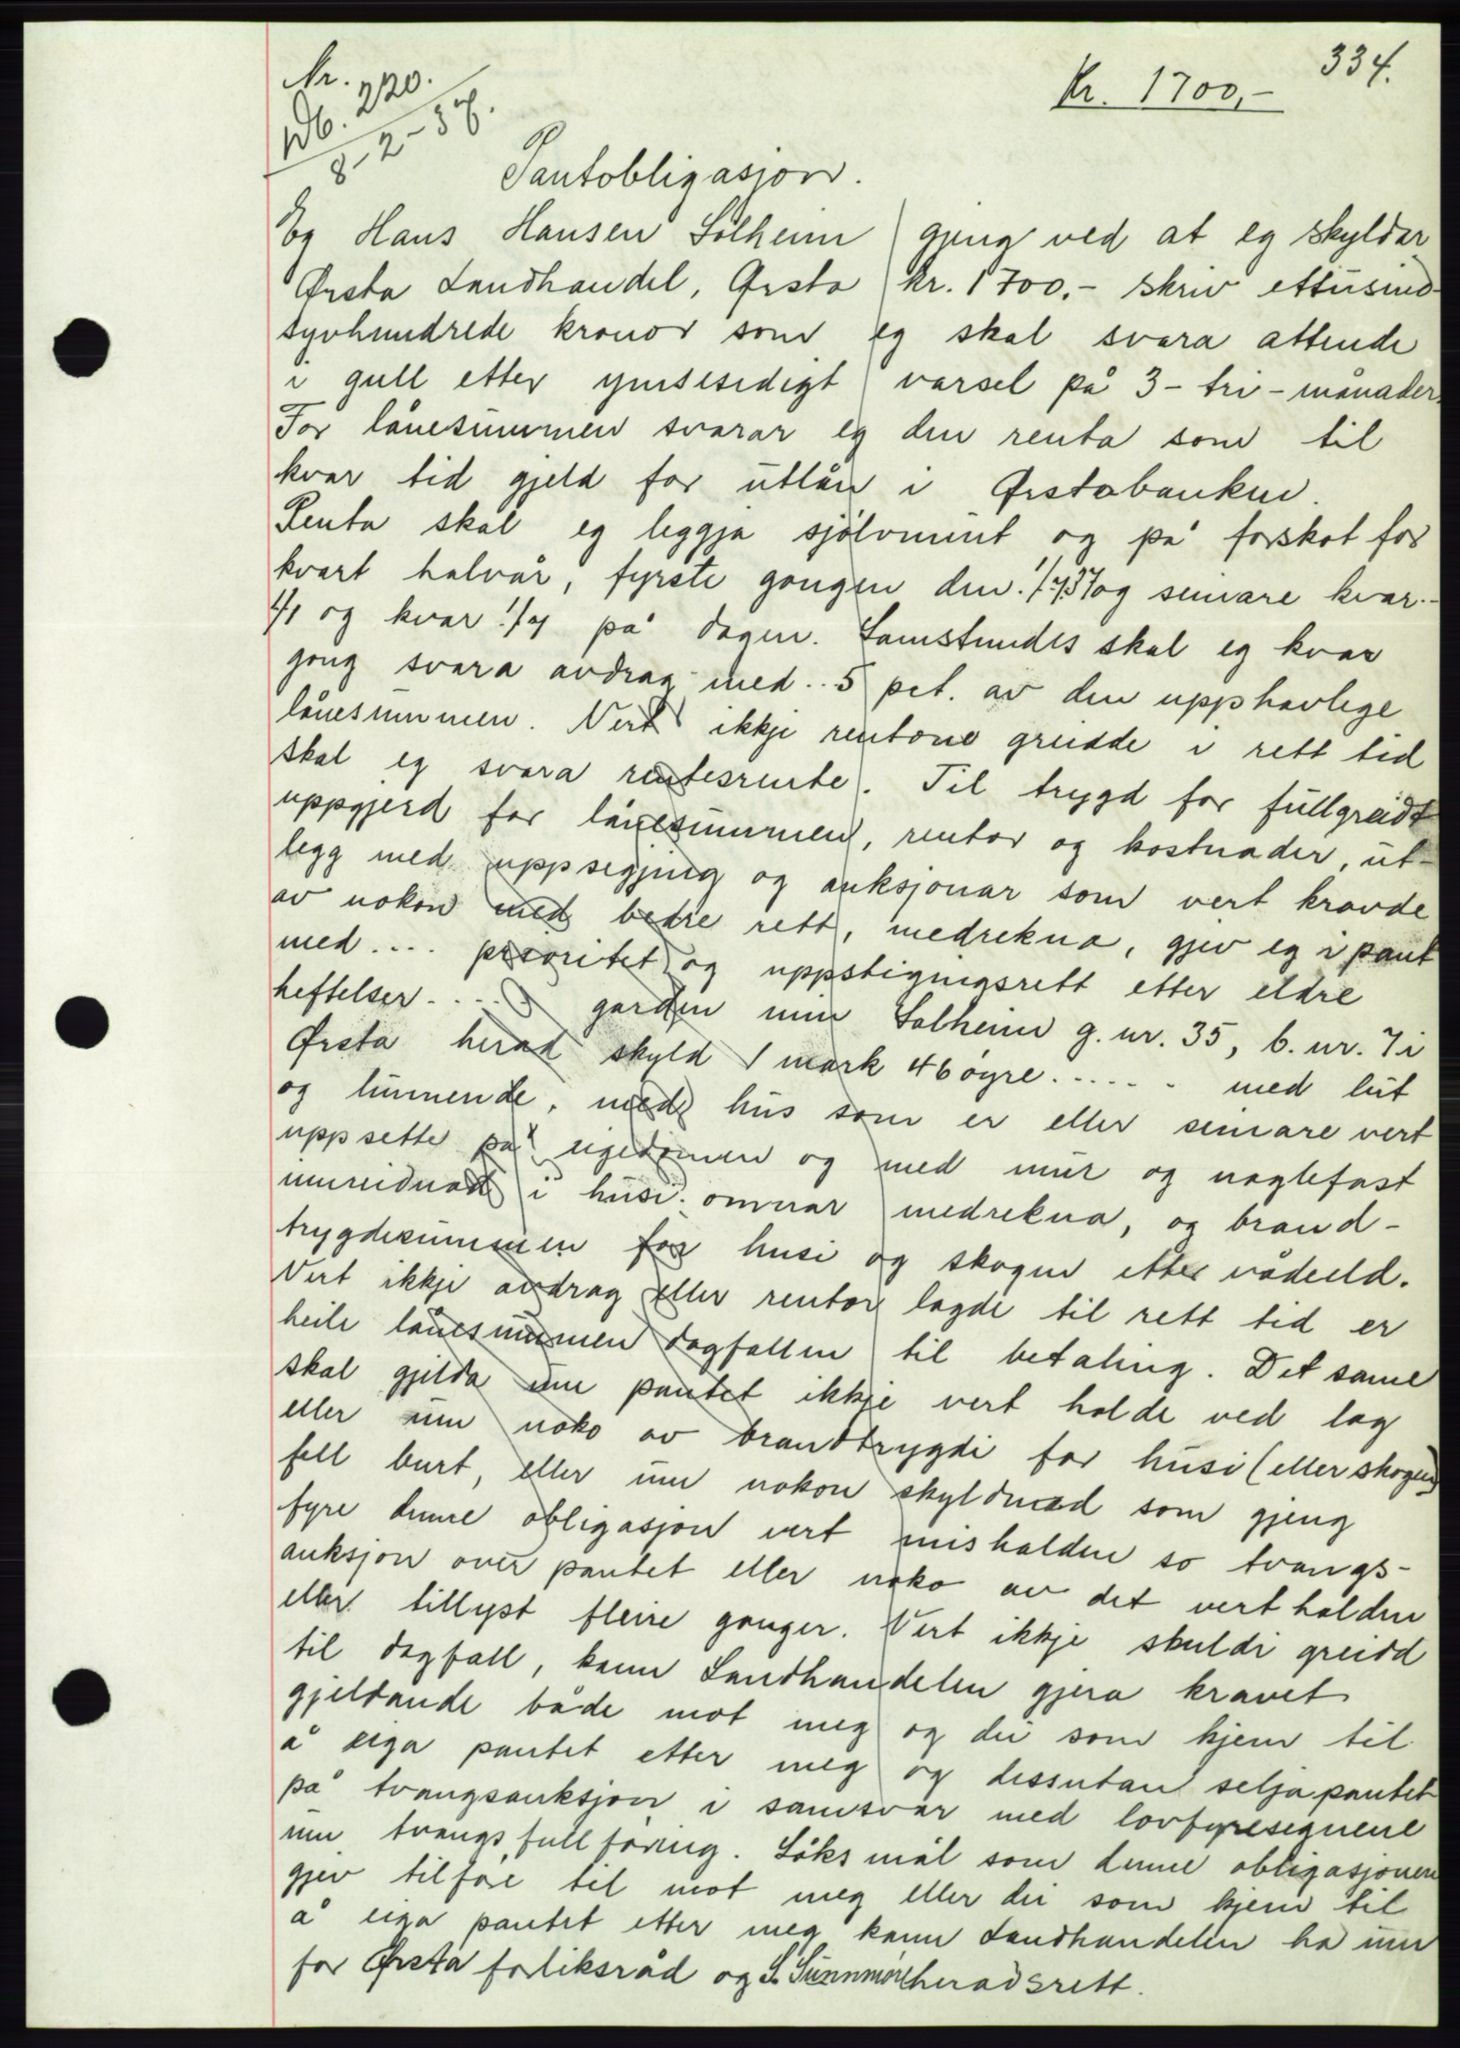 334.
Nr.
Wb. 220.
8-2-37.
Kr. 1700,-
Pantobligasjon.
Eg Hans Hansen Solheim gjeng ved at eg skyldar
Ørsta Landhandel, Ørsta kr. 1700.- skriv ettusind-
syvhundrede kronor som eg skal svara attende
i gull etter ymsesidigt varsel på 3 - tri - månader.
For lånesummen svarar eg den renta som til
kvar tid gjeld for utlån i Ørstabanken.
Renta skal eg leggja sjølvmint og på forskot for
kvart halvår, fyrste gongen den 1/7 37 og seinare kvar.-
1/1 og kvar 1/7 på dagen. Samstundes skal eg kvar
gong svara avdrag med .. 5 pct. av den upphavlege
lånesummen. Vert ikkje rentone greidde i rett tid
skal eg svara rentesrente. Til trygd for fullgreidt
uppgjerd for lånesummen, rentor og kostnader, ut-
legg med uppsegjing og auksjonar som vert kravde
av nokon med bedre rett, medrekna, gjev eg i pant
med .... prioritet og uppstigningsrett etter eldre
heftelser .... garden min Solheim g. nr. 35, b. nr. 7 i
Ørsta herad skyld 1 mark 46 øyre ...... med lut
og lunnende, med hus som er eller seinare vert
uppsette på eigedomen og med mur og naglefast
innreidnad i husi. omnar medrekna, og brand-
trygdesummen for husi og skogen etter vådeeld.
Vert ikkje avdrag eller rentor lagde til rett tid er
heile lånesummen dagfallen til betaling. Det same
skal gjelda um pantet ikkje vert halde ved lag
eller um noko av brandtrygdi for husi (eller skogen)
fell burt, eller um nokon skyldnad som gjeng
fyre denne obligasjon vert mishalden so tvangs-
auksjon over pantet eller noko av det vert halden
eller tillyst fleire gonger. Vert ikkje skuldi greidd
til dagfall, kann Landhandelen gjera kravet
gjeldande både mot meg og dei som kjem til
å eiga pantet etter meg og dessutan selja pantet
på tvangsauksjon i samsvar med lovfyresegnene
um tvangsfullføring. Søksmål som denne obligasjonen
gjev tilføre til mot meg eller dei som kjem til
å eiga pantet etter meg kann Landhandelen ha um
for Ørsta forliksråd og S. Sunnmøre heradsrett.